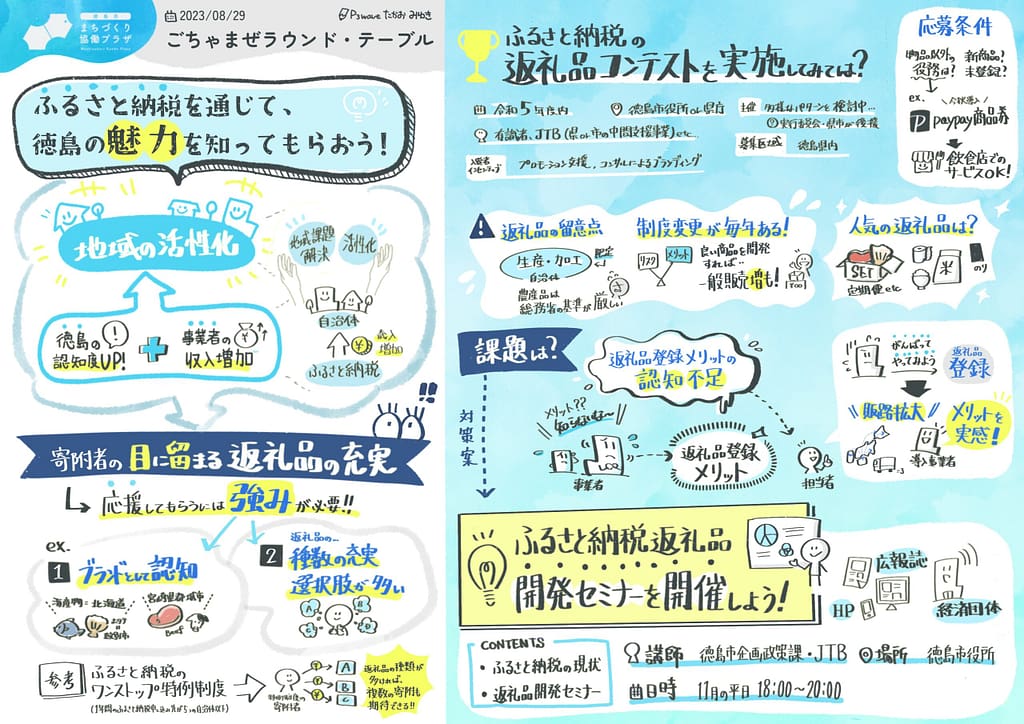 徳島市
まちづくり
協働プラザ
2023/08/29
P3wave たかみ みゆき
ごちゃまぜラウンド・テーブル
ふるさと納税を通じて、
徳島の魅力を知ってもらおう!
地域の活性化
徳島の
認知度UP!
事業者の
収入増加
地域課題
解決
活性化
自治体
収入
増加
ふるさと納税
!!
寄附者の目に留まる返礼品の充実
応援してもらうには強みが必要!!
ex.
1 ブランドとして認知
海産物:北海道
紋別市
宮崎県都城市
Beef
2 返礼品の…
種数の充実
選択肢が多い
A
B
C
参考
ふるさと納税の
ワンストップ特例制度
(1年間のふるさと納税申し込み先が5つの自治体以下)
寄附者
A
B
C
返礼品の種類が
多ければ、
複数の寄附も
期待できる!!
ふるさと納税の
返礼品コンテストを実施してみては?
令和5年度内
徳島市役所or県庁
主催 多様なパターンを検討中…
実行委員会・県市が後援
有識者、JTB(県or市の中間支援事業)etc.
募集区域 徳島県内
入選者
インセンティブ
プロモーション支援、コンサルによるブランディング
応募条件
物品以外の
役務は?
新商品?
未登録?
ex.
今状導入
paypay商品券
飲食店での
サービスOK!
返礼品の留意点
生産・加工
自治体
限定
農産品は
総務省の基準が厳しい
制度変更が毎年ある!
リスク
メリット
良い商品を開発
すれば…
一般販売増も!
人気の返礼品は?
SET
定期便etc
米
のり
課題は?
対策案
返礼品登録メリットの
認知不足
メリット??
知らないな~
事業者
返礼品登録
メリット
担当者
がんばって
やってみよう
返礼品
登録
販路拡大
メリットを
実感!
導入事業者
ふるさと納税返礼品
開発セミナーを開催しよう!
広報誌
HP
経済団体
CONTENTS
・ふるさと納税の現状
・返礼品開発セミナー
講師 徳島市企画政策課・JTB
場所 徳島市役所
日時 11月の平日 18:00~20:00